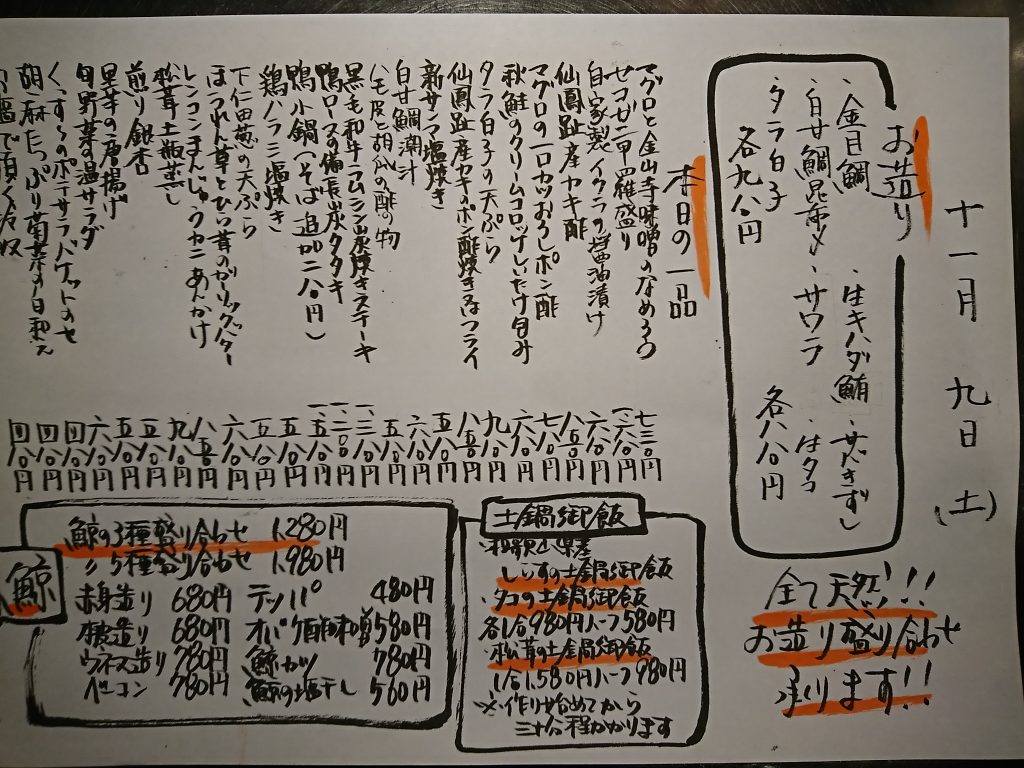 十一月 九日 (土)
お造り
・金目鯛 ・生キハダ鮪 ・サバきずし
・白甘鯛昆布〆 ・サワラ ・生タコ
・タラ白子
各九八〇円
各八八〇円
全て天然!!!
お造り盛り合わせ
承ります!!
本日の一品
マグロと金山寺味噌のなめろう 七三〇円
セコガニ甲羅盛り
自家製イクラの醤油漬け 六八〇円
仙鳳趾産カキ酢 八五〇円
マグロの一口カツおろしポン酢 七八〇円
秋鮭のクリームコロッケしいたけ包み 六八〇円
タラ白子の天ぷら 九八〇円
仙鳳趾産カキのポン酢焼き又はフライ 八五〇円
新サンマ塩焼き 五八〇円
白甘鯛潮汁 六八〇円
ハモ皮と胡瓜の酢の物 五八〇円
黒毛和牛ラムシン炭焼きステーキ
鴨ロースの備長炭タタキ
鴨小鍋(そば追加二八〇円)
鶏ハラミ塩焼き 五八〇円
下仁田葱の天ぷら 五八〇円
ほうれん草とひら茸のガーリックバター 六八〇円
レンコンまんじゅうカニあんかけ 八五〇円
松茸土瓶蒸し 九八〇円
煎り銀杏 五八〇円
里芋の唐揚げ 五八〇円
旬野菜の温サラダ 六八〇円
くんすんのポテサラバゲットのせ 四八〇円
胡麻たっぷり菊菜の白和え 四八〇円
塩で頂く冷奴 四八〇円
土鍋御飯
・和歌山県産
しらすの土鍋御飯
・タコの土鍋御飯
各1合980円ハーフ580円
・松茸の土鍋御飯
1合1,580円ハーフ980円
※作り始めてから
三十分程かかります
鯨
鯨の3種盛り合わせ 1,280円
〃5種盛り合わせ 1,980円
赤身造り 680円 テッパ 480円
本皮造り 680円 オバケ酢味噌和え 580円
ウネス造り 780円 鯨カツ 780円
ベーコン 780円 鯨の塩干し 560円